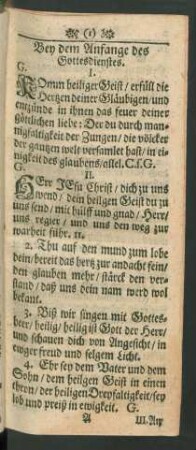 (1)
Bey dem Anfange des
Gottesdienstes.
G. I.
KOmm heiliger Geist/ erfüll die
Hertzen deiner Gläubigen/ und
entzünde in ihnen das feuer deiner
göttlichen liebe: Der du durch man-
nigfaltigkeit der Zungen/ die völcker
der gantzen welt versamlet hast/ in ei-
nigkeit des glaubens/ allel. C.s.G.
G. II.
HErr JEsu Christ/ dich zu uns
wend/ dein heilgen Geist du zu
uns send/ mit hülff und gnad/ Herr/
uns regier/ und uns den weg zur
warheit führ. n.
2. Thu auf den mund zum lobe
dein/ bereit das hertz zur andacht fein/
den glauben mehr/ stärck den ver-
stand/ daß uns dein nam werd wol
bekant.
3. Biß wir singen mit Gottes-
heer/ heilig/ heilig ist Gott der Herr/
und schauen dich von Angesicht/ in
ewger freud und selgem Licht.
4. Ehr sey dem Vater und dem
Sohn/ dem heilgen Geist in einen
thron/ der heiligen Dreyfaltigkeit/ sey
lob und preiß in ewigkeit. G.
A III. Any